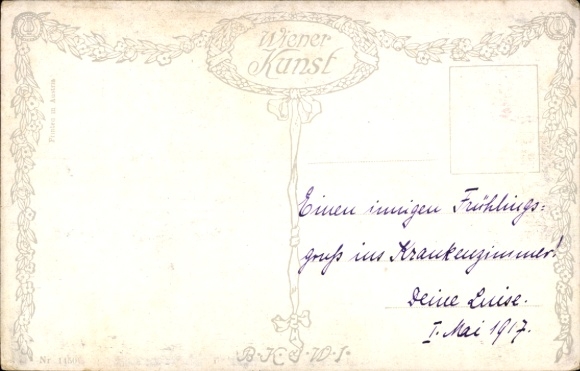 Wiener
Kunst
Printed in Austria
Einen innigen Frühlings=
gruß ins Krankenzimmer!
Deine Luise.
I. Mai 1917.
B.K.W.I.
Nr.